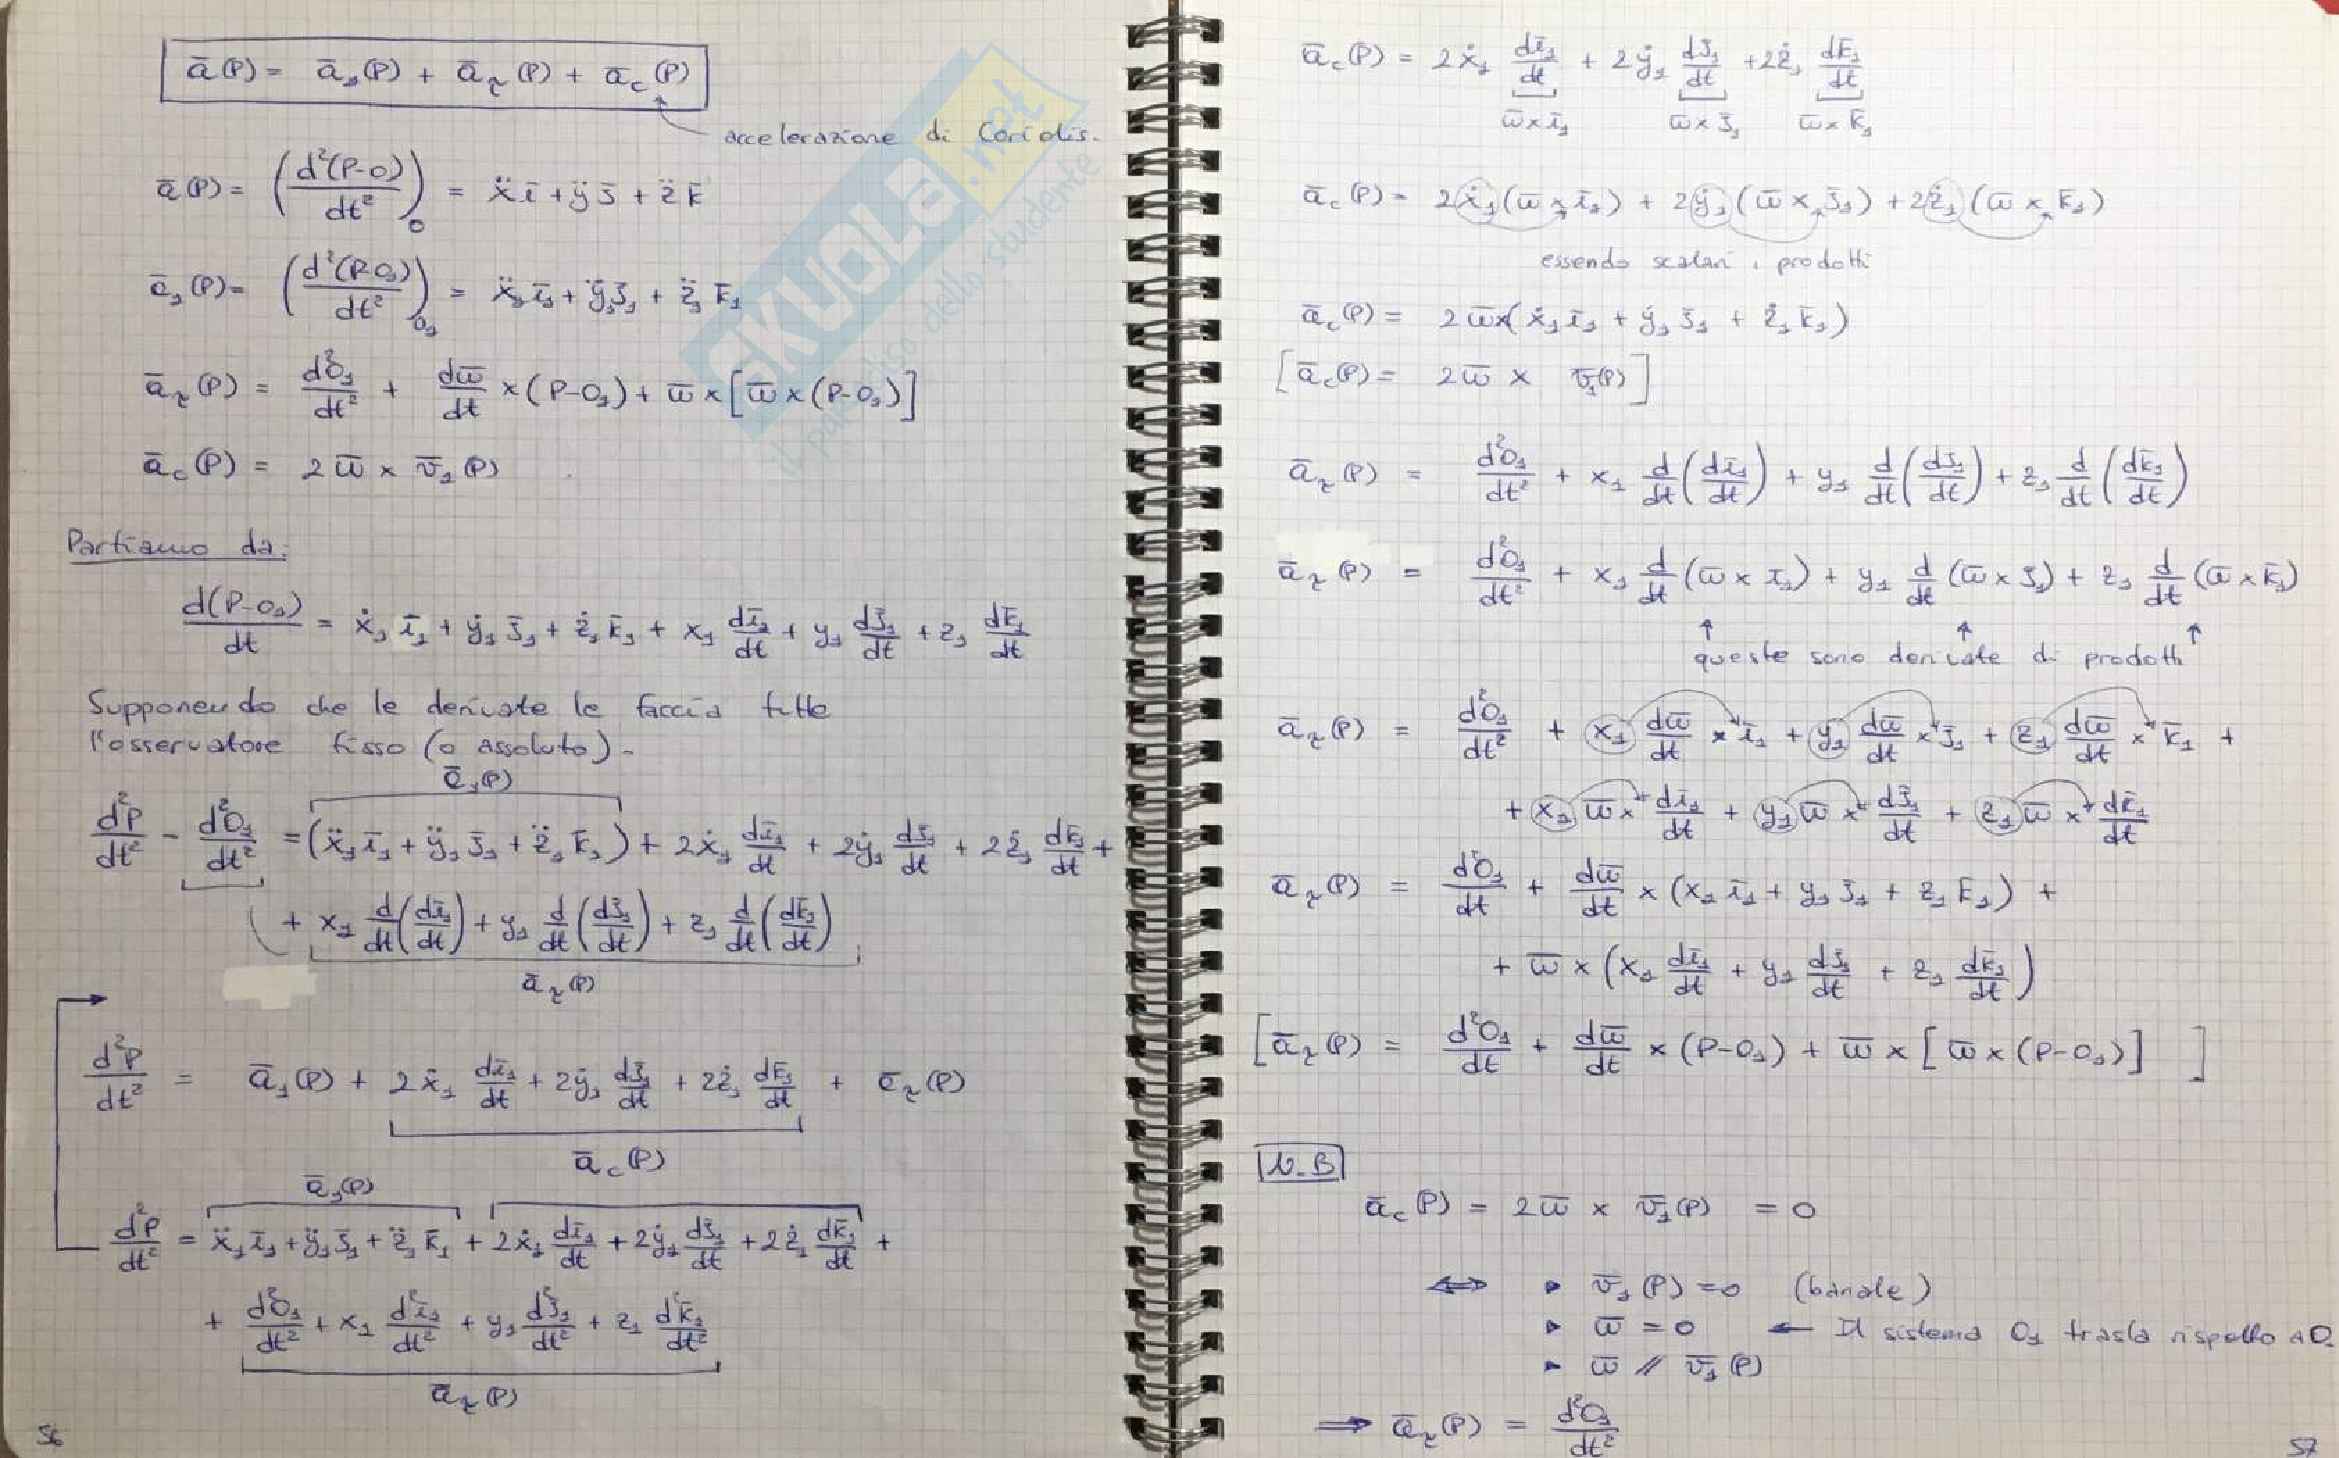 ā(P) = ā₁(P) + ā_τ(P) + ā_c(P)
accelerazione di Coriolis.
ā(P) = (d²(P-O)/dt²)_O = ẍ ī + ÿ j̄ + z̈ k̄
ā₁(P) = (d²(P-O₁)/dt²)_O₁ = ẍ₁ ī₁ + ÿ₁ j̄₁ + z̈₁ k̄₁
ā_τ(P) = d²O₁/dt² + dω̄/dt × (P-O₁) + ω̄ × [ω̄ × (P-O₁)]
ā_c(P) = 2 ω̄ × v̄₁(P)
Partiamo da:
d(P-O₁)/dt = ẋ₁ ī₁ + ẏ₁ j̄₁ + ż₁ k̄₁ + x₁ dī₁/dt + y₁ dj̄₁/dt + z₁ dk̄₁/dt
Supponendo che le derivate le faccia tutte
l'osservatore fisso (o assoluto) -
ā₁(P)
d²P/dt² - d²O₁/dt² = (ẍ₁ ī₁ + ÿ₁ j̄₁ + z̈₁ k̄₁) + 2ẋ₁ dī₁/dt + 2ẏ₁ dj̄₁/dt + 2ż₁ dk̄₁/dt +
+ x₁ d/dt(dī₁/dt) + y₁ d/dt(dj̄₁/dt) + z₁ d/dt(dk̄₁/dt)
ā_τ(P)
d²P/dt² = ā₁(P) + 2ẋ₁ dī₁/dt + 2ẏ₁ dj̄₁/dt + 2ż₁ dk̄₁/dt + ā_τ(P)
ā_c(P)
ā₁(P)
d²P/dt² = ẍ₁ ī₁ + ÿ₁ j̄₁ + z̈₁ k̄₁ + 2ẋ₁ dī₁/dt + 2ẏ₁ dj̄₁/dt + 2ż₁ dk̄₁/dt +
+ d²O₁/dt² + x₁ d²ī₁/dt² + y₁ d²j̄₁/dt² + z₁ d²k̄₁/dt²
ā_τ(P)
56
SKUOLA.net
il paradiso dello studente
ā_c(P) = 2ẋ₁ dī₁/dt + 2ẏ₁ dj̄₁/dt + 2ż₁ dk̄₁/dt
ω̄ × ī₁ ω̄ × j̄₁ ω̄ × k̄₁
ā_c(P) = 2ẋ₁(ω̄ × ī₁) + 2ẏ₁(ω̄ × j̄₁) + 2ż₁(ω̄ × k̄₁)
essendo scalari i prodotti
ā_c(P) = 2ω̄ × (ẋ₁ ī₁ + ẏ₁ j̄₁ + ż₁ k̄₁)
[ā_c(P) = 2ω̄ × v̄₁(P)]
ā_τ(P) = d²O₁/dt² + x₁ d/dt(dī₁/dt) + y₁ d/dt(dj̄₁/dt) + z₁ d/dt(dk̄₁/dt)
ā_τ(P) = d²O₁/dt² + x₁ d/dt(ω̄ × ī₁) + y₁ d/dt(ω̄ × j̄₁) + z₁ d/dt(ω̄ × k̄₁)
↑ ↑ ↑
queste sono derivate di prodotti
ā_τ(P) = d²O₁/dt² + x₁ dω̄/dt × ī₁ + y₁ dω̄/dt × j̄₁ + z₁ dω̄/dt × k̄₁ +
+ x₁ ω̄ × dī₁/dt + y₁ ω̄ × dj̄₁/dt + z₁ ω̄ × dk̄₁/dt
ā_τ(P) = d²O₁/dt + dω̄/dt × (x₁ ī₁ + y₁ j̄₁ + z₁ k̄₁) +
+ ω̄ × (x₁ dī₁/dt + y₁ dj̄₁/dt + z₁ dk̄₁/dt)
[ā_τ(P) = d²O₁/dt + dω̄/dt × (P-O₁) + ω̄ × [ω̄ × (P-O₁)] ]
N.B
ā_c(P) = 2ω̄ × v̄₁(P) = 0
⇔ ▸ v̄₁(P) = 0 (banale)
▸ ω̄ = 0 ← Il sistema O₁ trasla rispetto a O.
▸ ω̄ // v̄₁(P)
⇒ ā_τ(P) = d²O₁/dt²
57